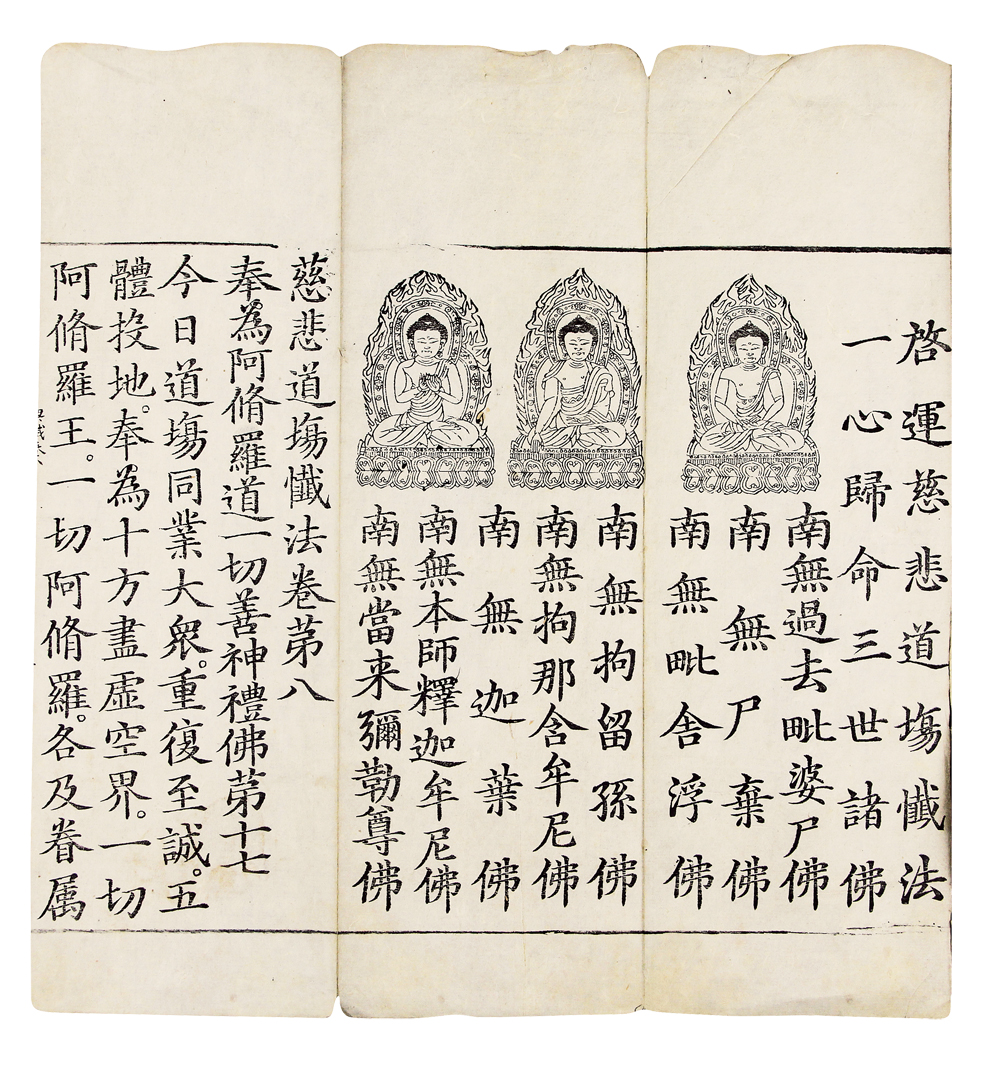 啓運慈悲道塲懺法
一心歸命三世諸佛
南無過去毗婆尸佛
南無尸棄佛
南無毗舍浮佛
南無拘留孫佛
南無拘那含牟尼佛
南無迦葉佛
南無本師釋迦牟尼佛
南無當来彌勒尊佛
慈悲道塲懺法卷苐八
奉為阿脩羅道一切善神禮佛苐十七
今日道塲同業大衆。重復至誠。五
體投地。奉為十方盡虛空界。一切
阿脩羅王。一切阿脩羅。各及眷属